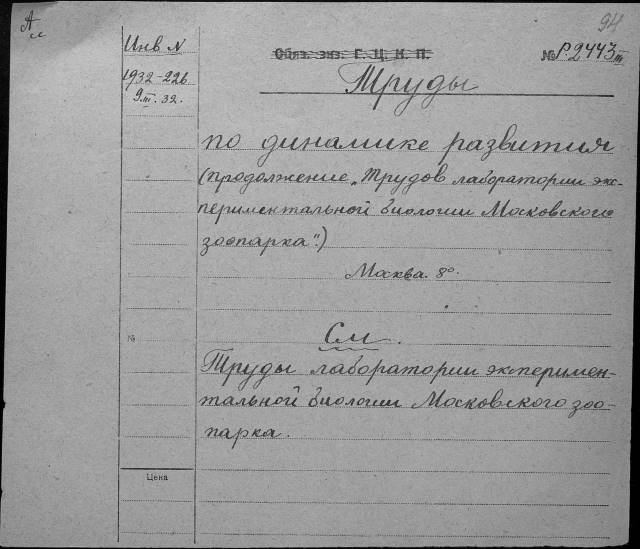 А
94
Инв N
Обяз. экз. Г. Ц. К. П.
№ Р. 2443 III
1932-226
9 III. 32.
Труды
по динамике развития
(продолжение „Трудов лаборатории экс-
периментальной биологии Московского
зоопарка".)
Москва. 8°.
№
См.
Труды лаборатории эксперимен-
тальной биологии Московского зоо-
парка.
Цена